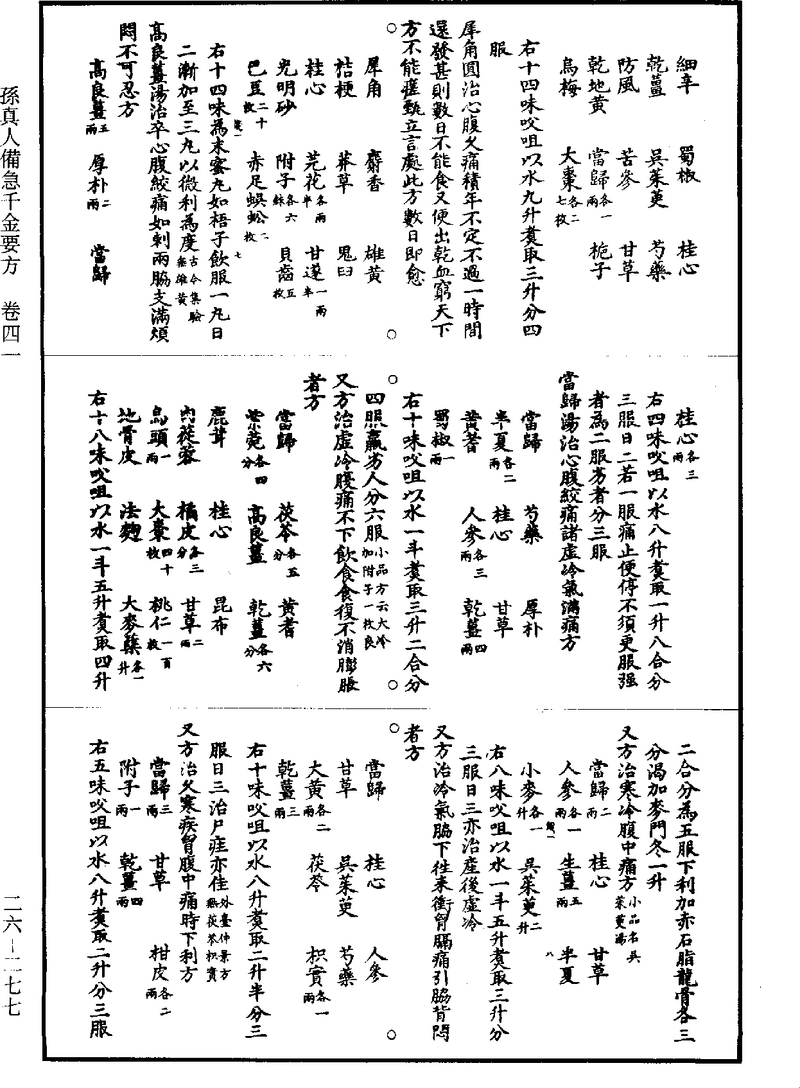 孫真人備急千金要方　卷四一
二六－二七七
細辛　蜀椒　桂心
乾薑　吳茱萸　芍藥
防風　苦參　甘草
乾地黃　當歸各一兩　梔子
烏梅　大棗各二七枚
右十四味㕮咀以水九升煮取三升分四
服
犀角圓治心腹久痛積年不定不過一時間
還發甚則數日不能食又便出乾血窮天下
方不能瘥甄立言處此方數日即愈
犀角　麝香　雄黃
桔梗　莽草　鬼臼
桂心　芫花各半兩　甘遂一兩半
光明砂　附子各六銖　貝齒五枚
巴豆二十枚　赤足蜈蚣二枚
右十四味為末蜜丸如梧子飲服一丸日
二漸加至三丸以微利為度古今集驗無雄黃
七
高良薑湯治卒心腹絞痛如刺兩脇支滿煩
悶不可忍方
高良薑五兩　厚朴二兩　當歸
桂心各三兩
右四味㕮咀以水八升煮取一升八合分
三服日二若一服痛止便停不須更服强
者為二服劣者分三服
當歸湯治心腹絞痛諸虛冷氣滿痛方
當歸　芍藥　厚朴
半夏各二兩　桂心　甘草
黃耆　人參各三兩　乾薑四兩
蜀椒一兩
右十味㕮咀以水一斗煮取三升二合分
四服羸劣人分六服小品方云大冷加附子一枚良
又方治虛冷腹痛不下飲食食復不消膨脹
者方
當歸　茯苓各五分　黃耆
紫菀各四分　高良薑　乾薑各六分
鹿茸　桂心　昆布
肉蓯蓉　橘皮各三分　甘草二兩
烏頭一兩　大棗四十枚　桃仁一百枚
地骨皮　法麴　大麥蘖各一升
右十八味㕮咀以水一斗五升煮取四升
二合分為五服下利加赤石脂龍骨各三
分渴加麥門冬一升
又方治寒冷腹中痛方小品名吳茱萸湯
當歸二兩　桂心　甘草
人參各一兩　生薑五兩　半夏
小麥各一升　吳茱萸二升
八
右八味㕮咀以水一斗五升煮取三升分
三服日三亦治產後虛冷
又方治冷氣脇下往來衝胷膈痛引脇背悶
者方
當歸　桂心　人參
甘草　吳茱萸　芍藥
大黃各二兩　茯苓　枳實各一兩
乾薑三兩
右十味㕮咀以水八升煮取二升半分三
服日三治尸疰亦佳外臺仲景方無茯苓枳實
又方治久寒疾胷腹中痛時下利方
當歸三兩　甘草　柑皮各二兩
附子一兩　乾薑四兩
右五味㕮咀以水八升煮取二升分三服